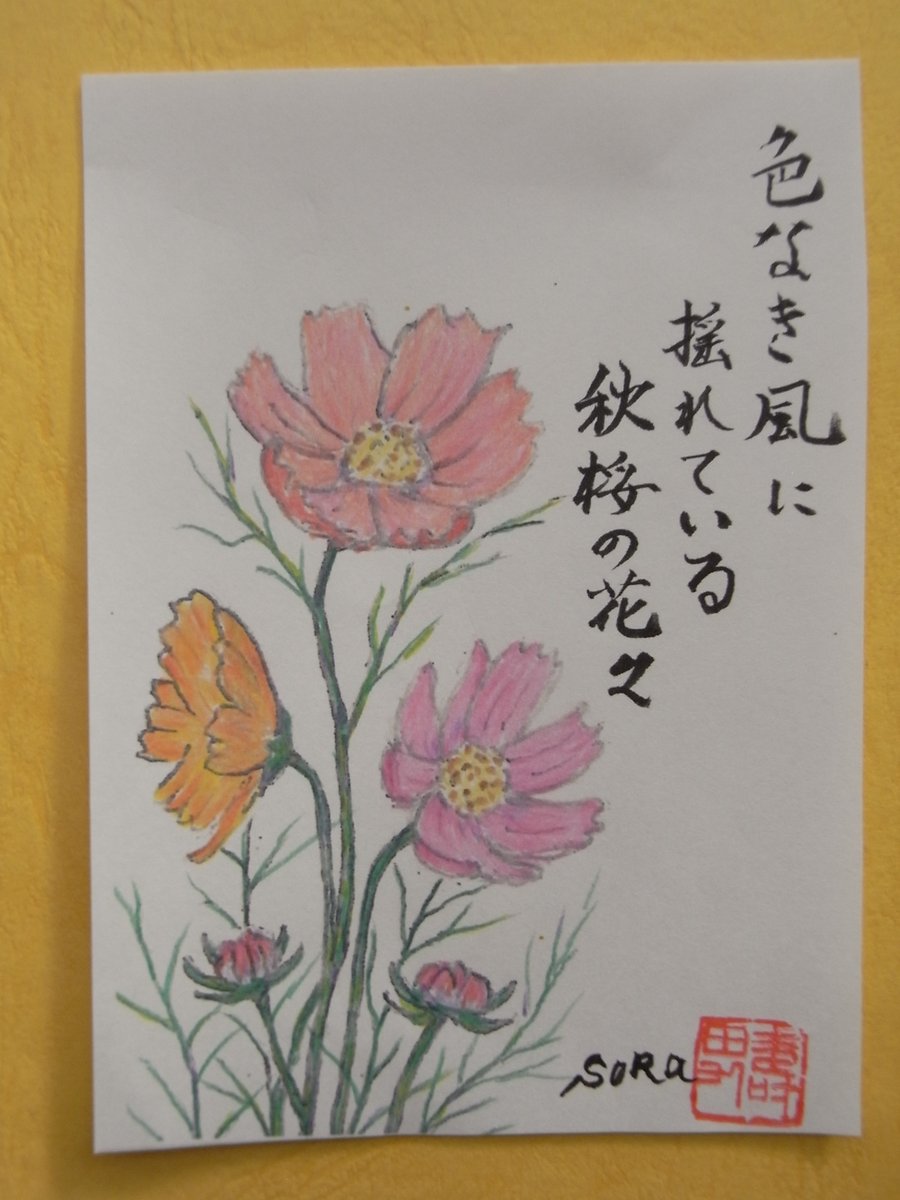 色なき風に
揺れている
秋桜の花々
SORA